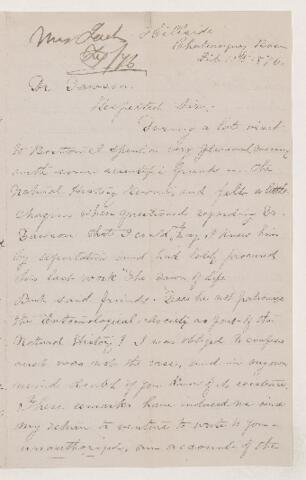 Mrs Jack
Fy/76
Hillside
Chateauguay Basin
Feb 11th 1876.
Dr Dawson.
Respected Sir.
During a late visit
to Boston I spent a very pleasant evening
with some scientific friends in the
Natural History Rooms, and felt a little
chagrin when questioned regarding Dr.
Dawson that I could say, I knew him
by reputation and had lately procured
his last work "The dawn of Life
But said friends. Does he not patronise
the Entomological society as part of the
Natural History? I was obliged to confess
such was not the case, and in my own
mind doubt if you know of its existence.
These remarks have induced me since
my return to venture to write to you
unauthorized, an account of the